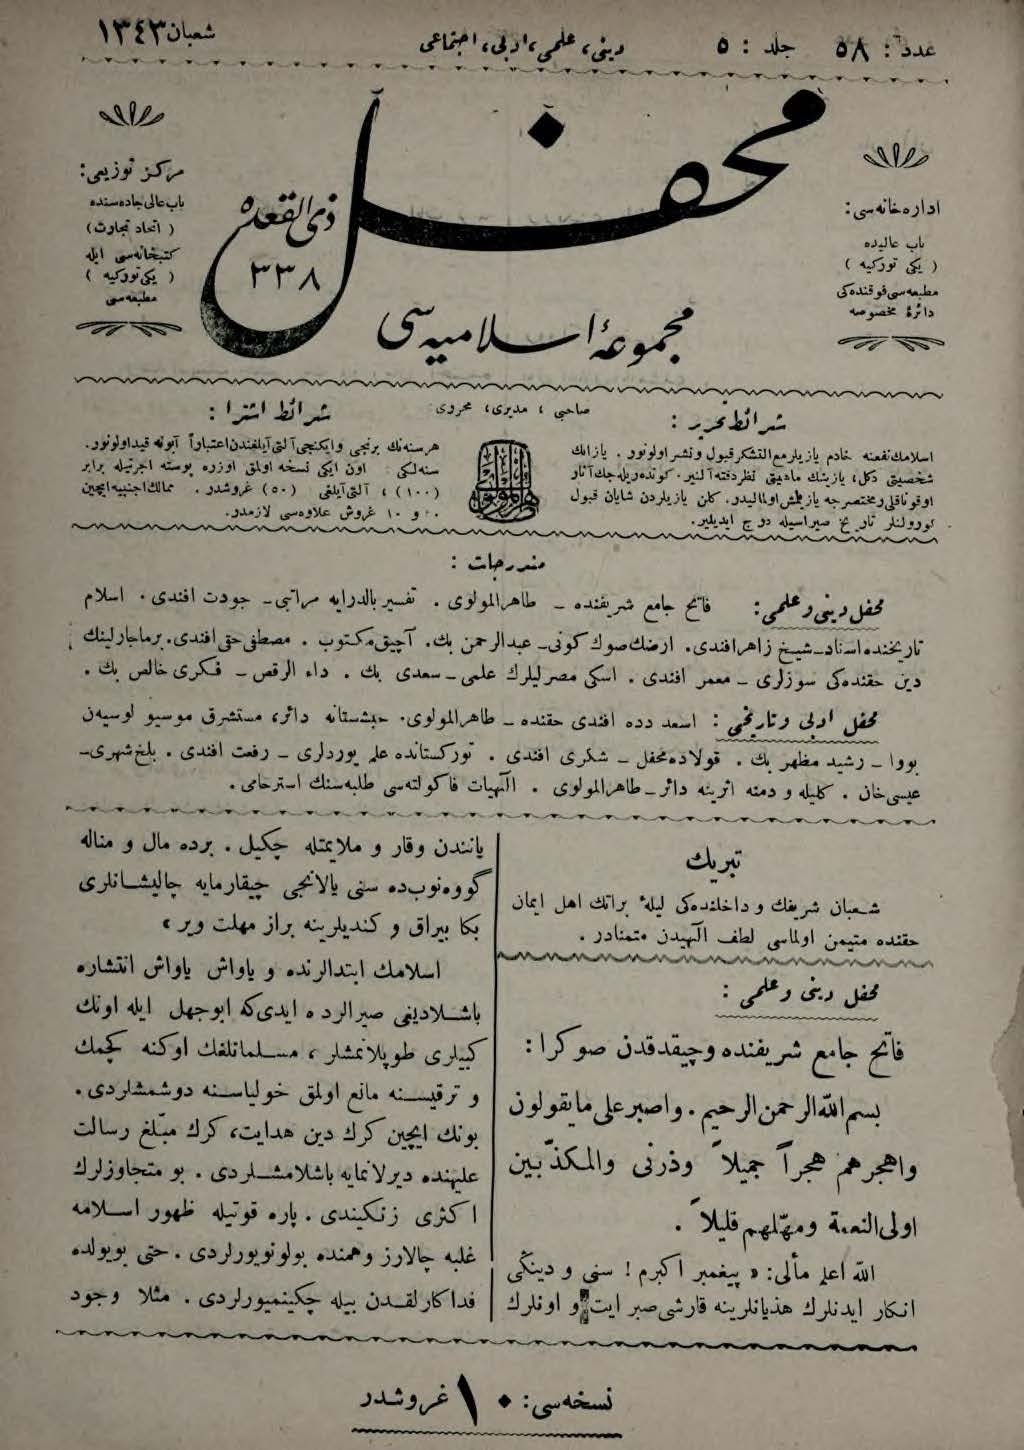 عدد : ٥٨ جلد : ٥
دینی ، علمی ، ادبی ، اجتماعی
شعبان ١٣٤٣
محفل
ذی القعده
٣٣٨
مجموعهٔ اسلامیه سی
اداره خانه سی :
باب عالیده
( یکی تورکیه )
مطبعه سی فوقنده کی
دائرهٔ مخصوصه
مرکز توزیعی :
باب عالی جاده سنده
( اتحاد تجارت )
کتبخانه سی ایله
( یکی تورکیه )
مطبعه سی
شرائط تحریر :
اسلامك نفعنه خادم یازیلر مع التشکر قبول و نشر اولونور . یازانك
شخصیتی دکل ، یازینك ماهیتی نظر دقته آلنیر . کوندریله جك آثار
اوقوناقلی و مختصرجه یازیلمش اولمالیدر . کلن یازیلردن شایان قبول
کورولنلر تاریخ صیراسیله درج ایدیلیر .
صاحبی ، مدیری ، محرری
طاهر المولوی
شرائط اشترا :
هر سنه نك برنجی و ایکنجی آلتی آیلغندن اعتباراً آبونه قید اولونور .
سنه لکی : اون ایکی نسخه اولمق اوزره پوسته اجرتیله برابر
(١٠٠) ، آلتی آیلغی (٥٠) غروشدر . ممالك اجنبیه ایچین
و ١٠ غروش علاوه سی لازمدر .
مندرجات :
محفل دینی و علمی : فاتح جامع شریفنده ـ طاهر المولوی . تفسیر بالدرایه مراتبی ـ جودت افندی . اسلام
تاریخنده اسناد ـ شیخ زاهر افندی . ارضك صوك کونی ـ عبدالرحمن بك . آچیق مکتوب . مصطفی حقی افندی . برماجارلینك
دین حقنده کی سوزلری ـ معمر افندی . اسکی مصرلیلرك علمی ـ سعدی بك . داء الرقص ـ فکری خالص بك .
محفل ادبی و تاریخی : اسعد دده افندی حقنده ـ طاهر المولوی . حبشستانه دائر ، مستشرق موسیو لوسیه ن
بووا ـ رشید مظهر بك . قولاده محفل ـ شکری افندی . تورکستانده علم یوردلری ـ رفعت افندی . بلخ شهری ـ
عیسی خان . کلیله و دمنه اثرینه دائر ـ طاهر المولوی . الٓهیات فاکولته سی طلبه سنك استرحامی .
تبریك
شعبان شریفك و داخلنده کی لیلهٔ براتك اهل ایمان
حقنده متیمن اولماسی لطف الٓهیدن متمنادر .
محفل دینی و علمی :
فاتح جامع شریفنده و چیقدقدن صوکرا :
بسم الله الرحمن الرحیم . واصبر علی ما یقولون
واهجرهم هجراً جمیلاً وذرنی والمکذّبین
اولی النعمة ومهّلهم قلیلاً .
الله اعلم مآلی : « پیغمبر اکرم ! سنی و دینکی
انکار ایدنلرك هذیانلرینه قارشی صبر ایت و اونلرك
یانندن وقار و ملایمتله چکیل . برده مال و مناله
گووه نوب ده سنی یالانجی چیقارمایه چالیشانلری
بکا بیراق و کندیلرینه براز مهلت ویر »
اسلامك ابتدالرنده و یاواش یاواش انتشاره
باشلادیغی صیرالرده ایدی که ابوجهل ایله اونك
کبیلری طوپلانمشلر ، مسلمانلغك اوکنه کچمك
و ترقیسنه مانع اولمق خولیاسنه دوشمشلردی .
بونك ایچین کرك دین هدایت ، کرك مبلّغ رسالت
علیهنده دیرلانمایه باشلامشلردی . بو متجاوزلرك
اکثری زنکیندی . پاره قوتیله ظهور اسلامه
غلبه چالارز وهمنده بولونویورلردی . حتی بویولده
فداکارلقدن بیله چکینمیورلردی . مثلا وجود
نسخه سی : ١٠ غروشدر